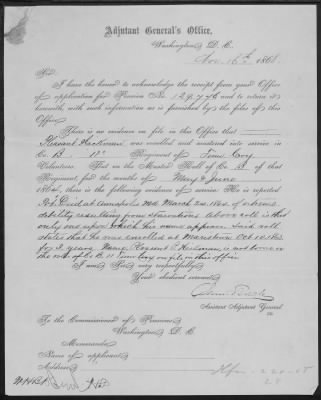 Adjutant General's Office,
Washington, D. C.
Nov. 16th 1868
Sir:
I have the honor to acknowledge the receipt from your Office
of application for Pension No. 129,746 and to return it
herewith, with such information as is furnished by the files of this
Office.
There is no evidence on file in this Office that
was enrolled and mustered into service in
Co. B. 11th Regiment of Tenn Cavy
Volunteers. That on the Muster Roll of Co. B. of that
Regiment, for the months of May & June
1864, there is the following evidence of service: He is reported
Pvt. Died at Annapolis Md March 24 1864 of extreme
debility resulting from starvation. Above roll is the
only one upon which his name appears. Said roll
states that he was enrolled at Oct 10 1863
for 3 years. Name is not borne on
the of Co. B. 11 Tenn Cavy on file in this office
I am, Sir, very respectfully,
Your obedient servant,
Assistant Adjutant General
To the Commissioner of Pensions,
Washington, D. C.
Memoranda:
Name of applicant
Address